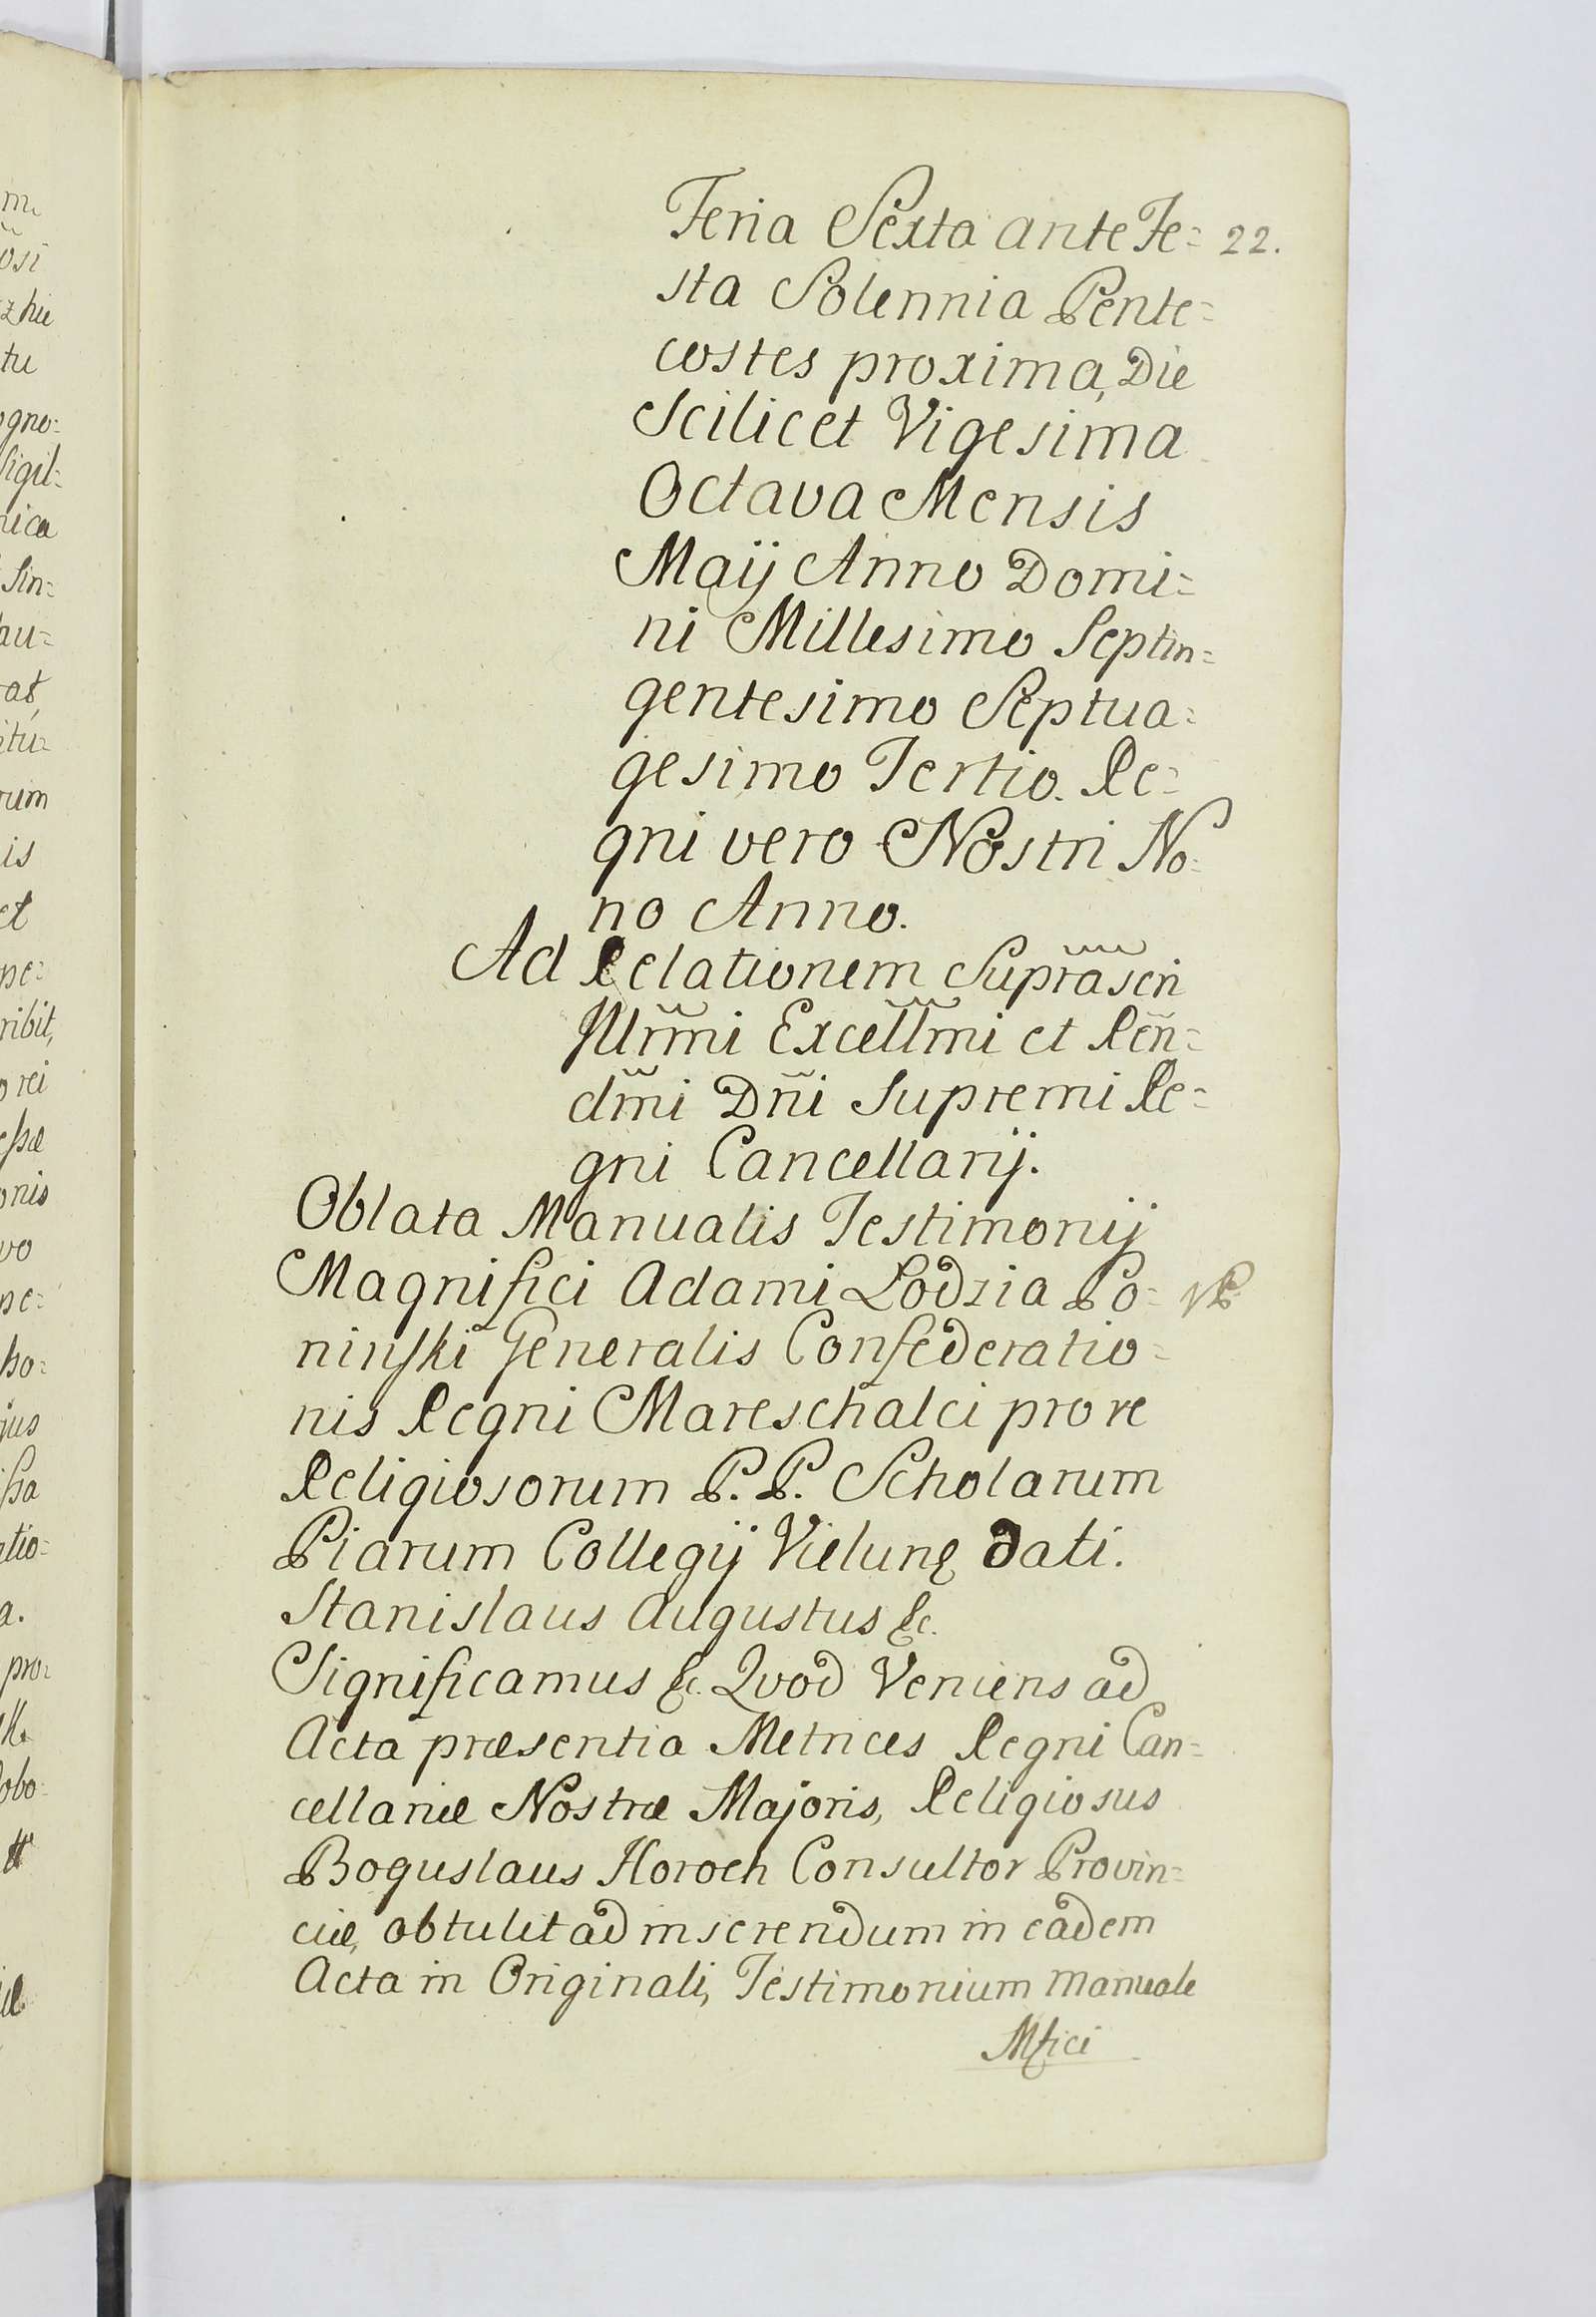 Feria Sexta ante Fe= 22.
sta Solennia Pente=
costes proxima, Die
Scilicet Vigesima
Octava Mensis
Maij Anno Domi=
ni Millesimo Septin=
gentesimo Septua=
gesimo Tertio. Re=
gni vero Nostri No=
no Anno.
Ad Relationem Suprascri
Illrmi Excellmi et Ren=
dmi Dni Supremi Re=
gni Cancellarij.
Oblata Manualis Testimonij
Magnifici Adami Lodzia Po=
ninski Generalis Confederatio=
nis Regni Mareschalci pro re
Religiosorum P. P. Scholarum
Piarum Collegij Vielunę dati.
Stanislaus Augustus &c.
Significamus &c. Quod Veniens ad
Acta præsentia Metrices Regni Can=
cellariæ Nostræ Majoris, Religiosus
Boguslaus Horoch Consultor Provin=
ciæ, obtulit ad inserendum in eadem
Acta in Originali, Testimonium Manuale
Mfici